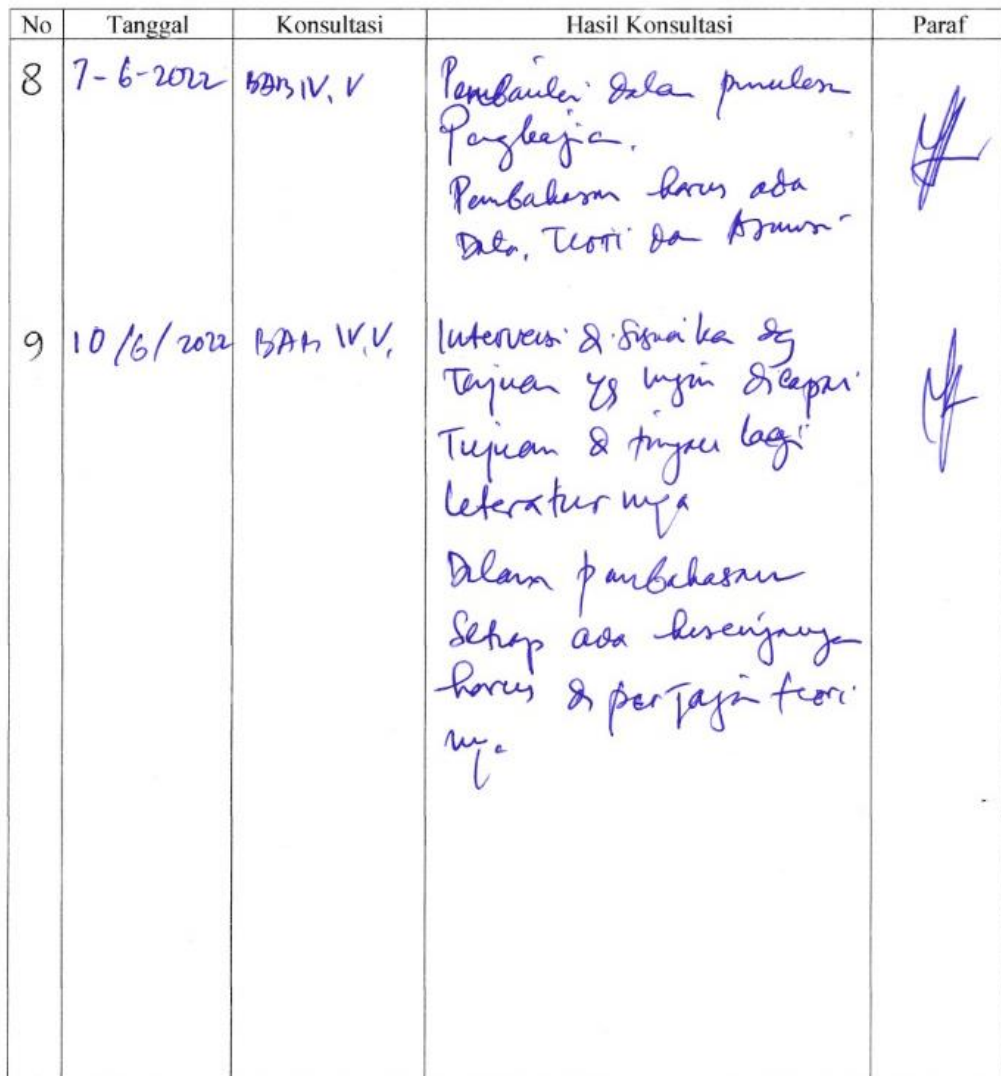 No Tanggal Konsultasi Hasil Konsultasi Paraf
8 7-6-2022 BAB IV, V dalam penulisan
Pengkajian.
Pembahasan harus ada
Data, Teori dan Asumsi
9 10/6/2022 BAB IV, V, Intervensi di sesuaikan dg
Tujuan yg ingin dicapai
Tujuan di tinjau lagi
literatur nya
Dalam pembahasan
Setiap ada kesenjangan
harus di pertajam teori
nya